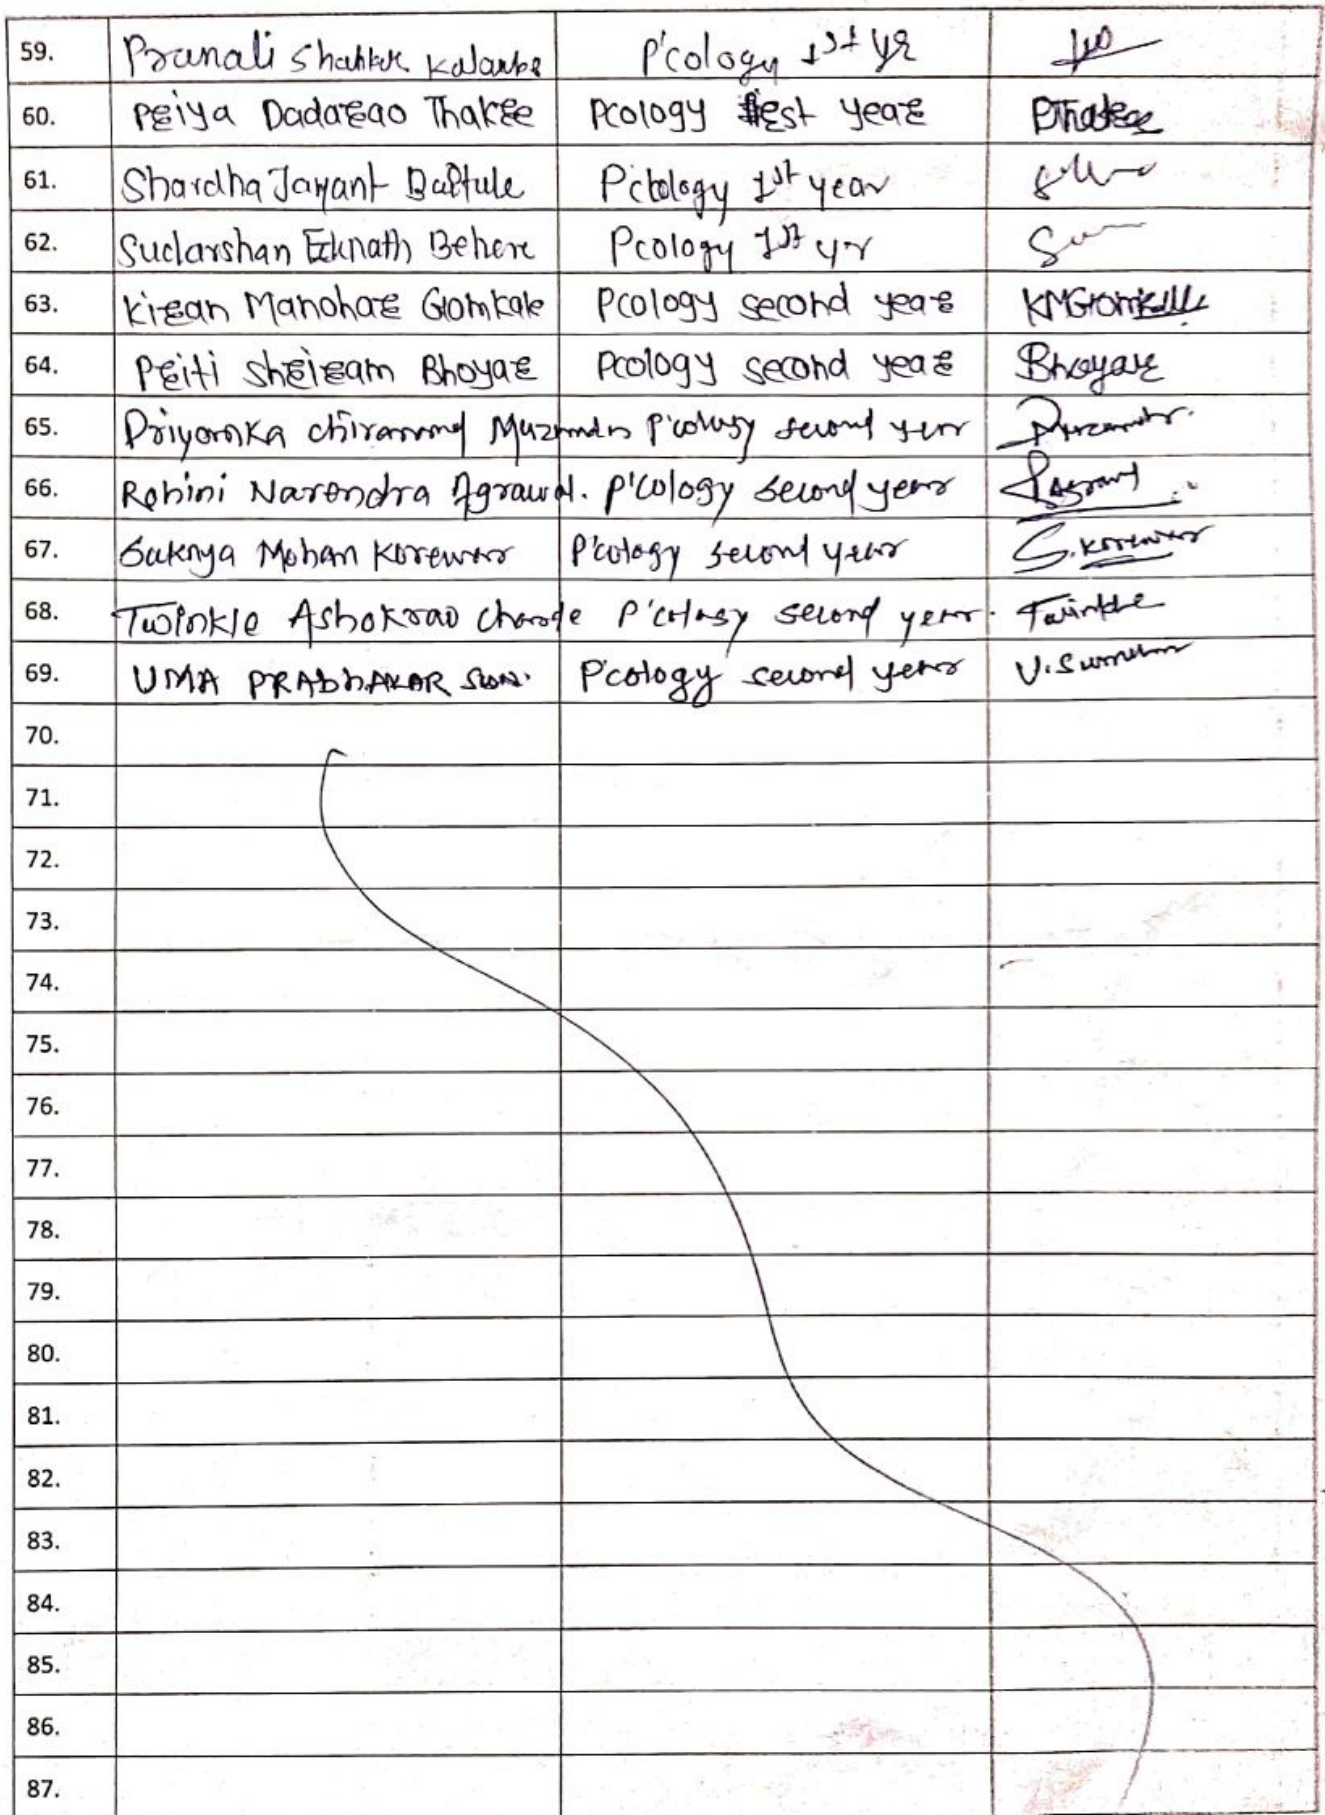 59. Pranali Shankar Kalambe P'cology 1st yr
60. Priya Dadarao Thakre Pcology first year BThakre
61. Shardha Jayant Pcology 1st year
62. Sudarshan Eknath Behere Pcology 1st yr
63. Kiran Manohar Gomkale Pcology second year KMGomkale
64. Priti Shriram Bhoyar Pcology second year Bhoyar
65. Priyanka P'cology second year
66. Rohini Narendra Agrawal. P'cology second year
67. Suknya Mohan Korewar P'cology second year S. Korewar
68. Twinkle Ashokrao P'cology second year. Twinkle
69. UMA PRABHAKAR P'cology second year
70.
71.
72.
73.
74.
75.
76.
77.
78.
79.
80.
81.
82.
83.
84.
85.
86.
87.